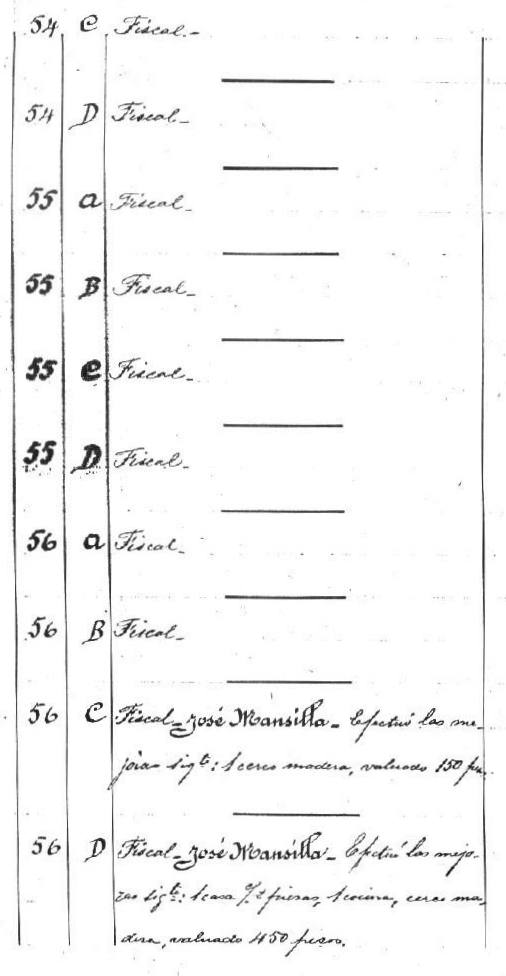 54 C Fiscal.-
54 D Fiscal-
55 a Fiscal-
55 B Fiscal-
55 C Fiscal-
55 D Fiscal-
56 a Fiscal-
56 B Fiscal-
56 C Fiscal-José Mansilla- Efectuó las me-
joras sigte: 1 cerco madera, valuado 150 pes.
56 D Fiscal-José Mansilla- Efectuó las mejo-
ras sigte: 1 casa c/2 piezas, 1 cocina, cerco ma-
dera, valuado 450 pesos.